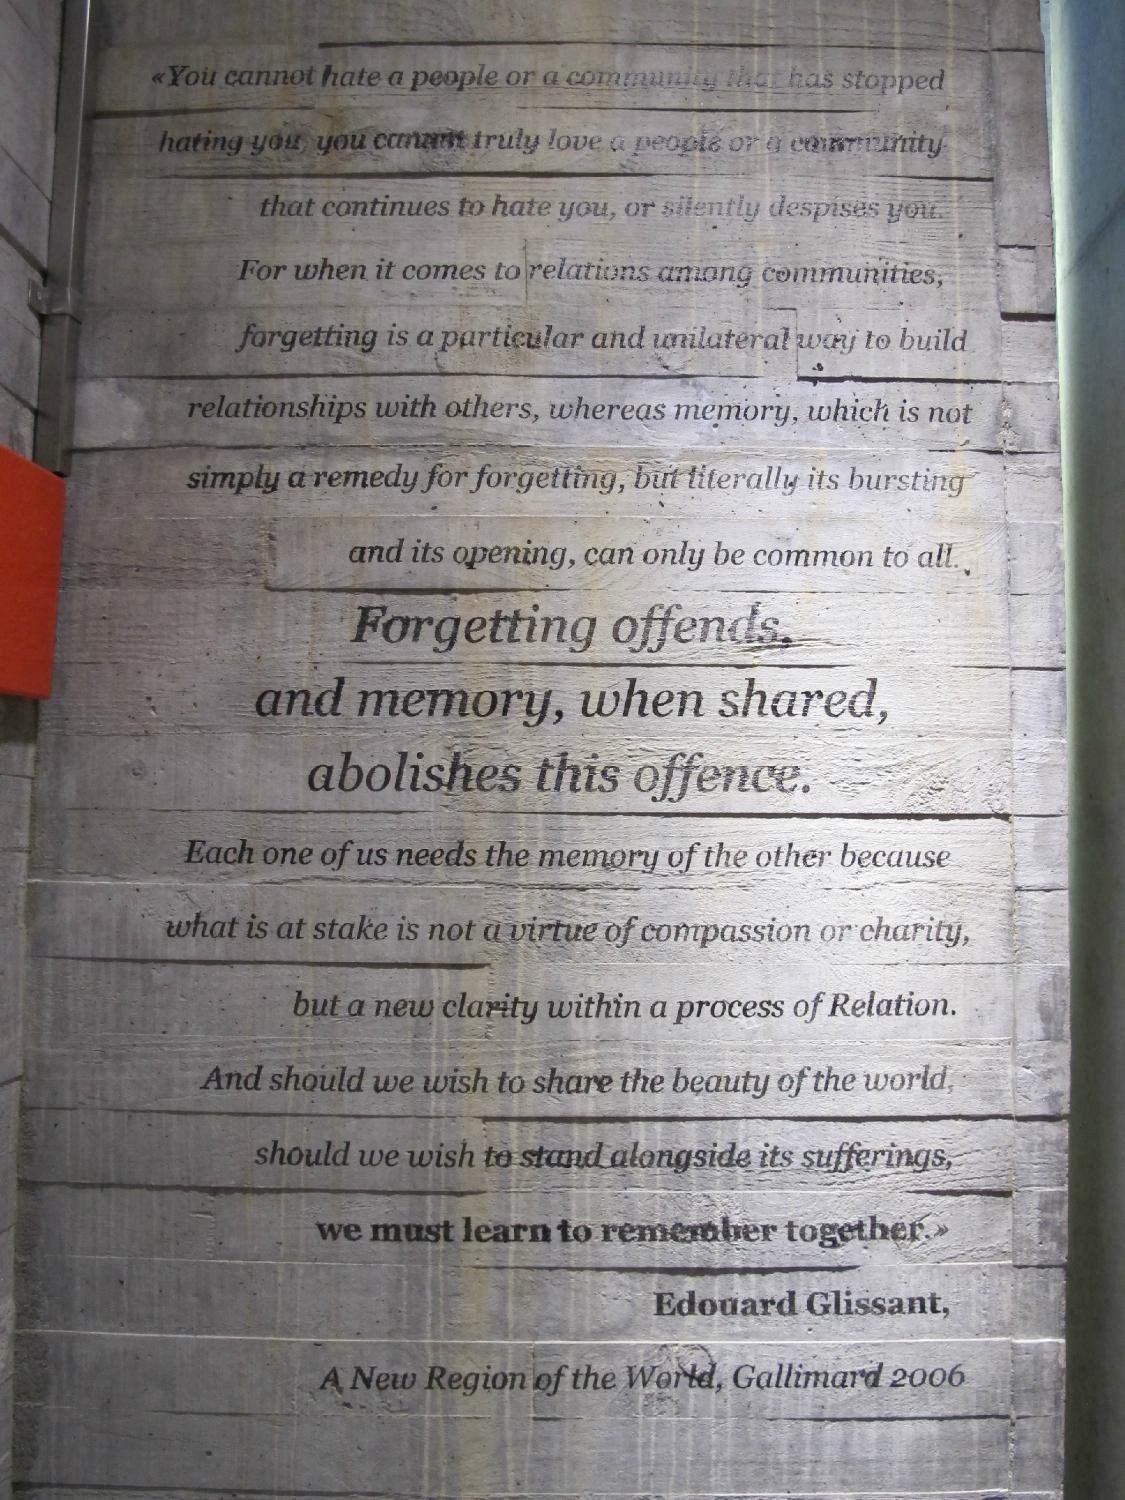 «You cannot hate a people or a community that has stopped
hating you, you cannot truly love a people or a community
that continues to hate you, or silently despises you.
For when it comes to relations among communities,
forgetting is a particular and unilateral way to build
relationships with others, whereas memory, which is not
simply a remedy for forgetting, but literally its bursting
and its opening, can only be common to all.
Forgetting offends,
and memory, when shared,
abolishes this offence.
Each one of us needs the memory of the other because
what is at stake is not a virtue of compassion or charity,
but a new clarity within a process of Relation.
And should we wish to share the beauty of the world,
should we wish to stand alongside its sufferings,
we must learn to remember together.»
Edouard Glissant,
A New Region of the World, Gallimard 2006